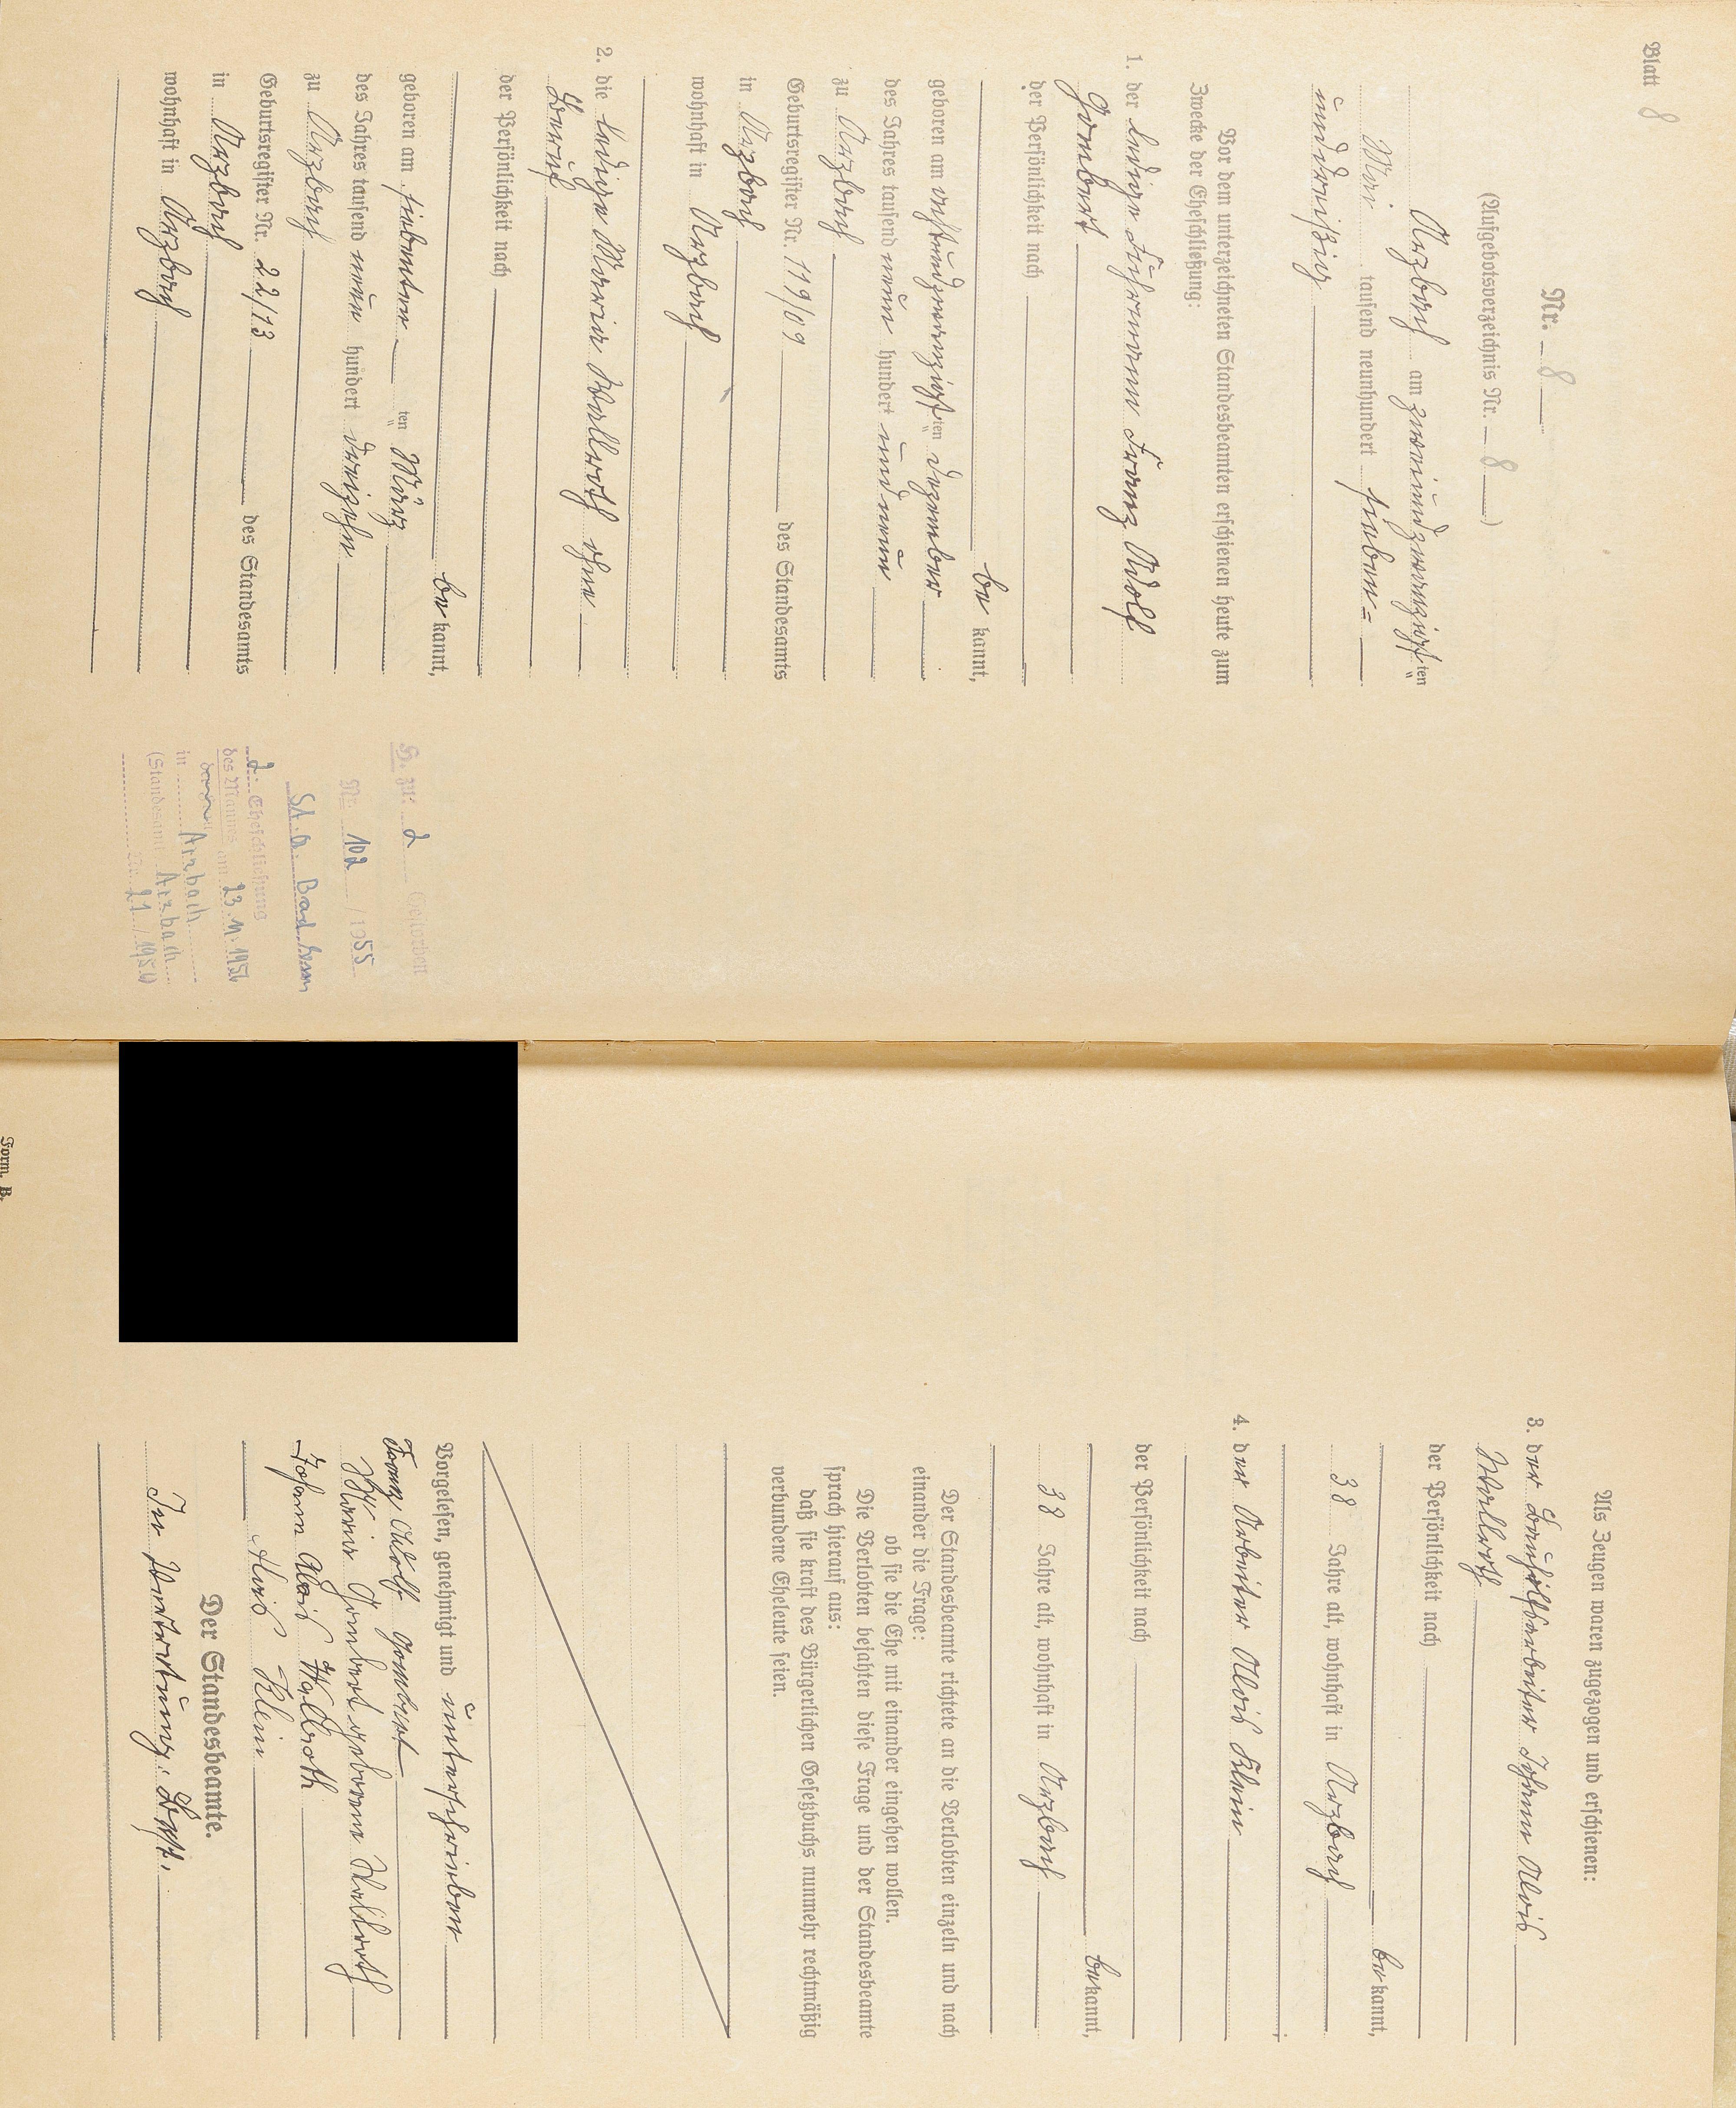 Blatt 8
Nr. 8
(Aufgebotsverzeichnis Nr. 8)
Arzbach am zweiundzwanzigsten
Mai tausend neunhundert sieben=
unddreißig
Vor dem unterzeichneten Standesbeamten erschienen heute zum
Zwecke der Eheschließung:
1. der ledige Fuhrmann Franz Adolf
Gombert
der Persönlichkeit nach
be kannt,
geboren am achtundzwanzigsten Dezember
des Jahres tausend neun hundert und neun
zu Arzbach
Geburtsregister Nr. 119/09 des Standesamts
in Arzbach
wohnhaft in Arzbach
2. die ledige Maria Wallroth ohne
Beruf
der Persönlichkeit nach
be kannt,
geboren am siebenten ten März
des Jahres tausend neun hundert dreizehn
zu Arzbach
Geburtsregister Nr. 22/13 des Standesamts
in Arzbach
wohnhaft in Arzbach
H. zu: 2 Gestorben
Nr. 102 / 1955
St. A. Bad Ems
2. Eheschließung
des Mannes am 23.11.1956
in Arzbach
(Standesamt Arzbach
Nr. 21 / 1956)
Als Zeugen waren zugezogen und erschienen:
3. der Bauhilfsarbeiter Johann Alois
Wallroth
der Persönlichkeit nach
be kannt,
38 Jahre alt, wohnhaft in Arzbach
4. der Arbeiter Alois Klein
der Persönlichkeit nach
be kannt,
38 Jahre alt, wohnhaft in Arzbach
Der Standesbeamte richtete an die Verlobten einzeln und nach
einander die Frage:
ob sie die Ehe mit einander eingehen wollen.
Die Verlobten bejahten diese Frage und der Standesbeamte
sprach hierauf aus:
daß sie kraft des Bürgerlichen Gesetzbuchs nunmehr rechtmäßig
verbundene Eheleute seien.
Vorgelesen, genehmigt und unterschrieben
Franz Adolf Gombert
Maria Gombert geborene Wallroth
Johann Alois Wallroth
Alois Klein
Der Standesbeamte.
In Vertretung:
Form. B.